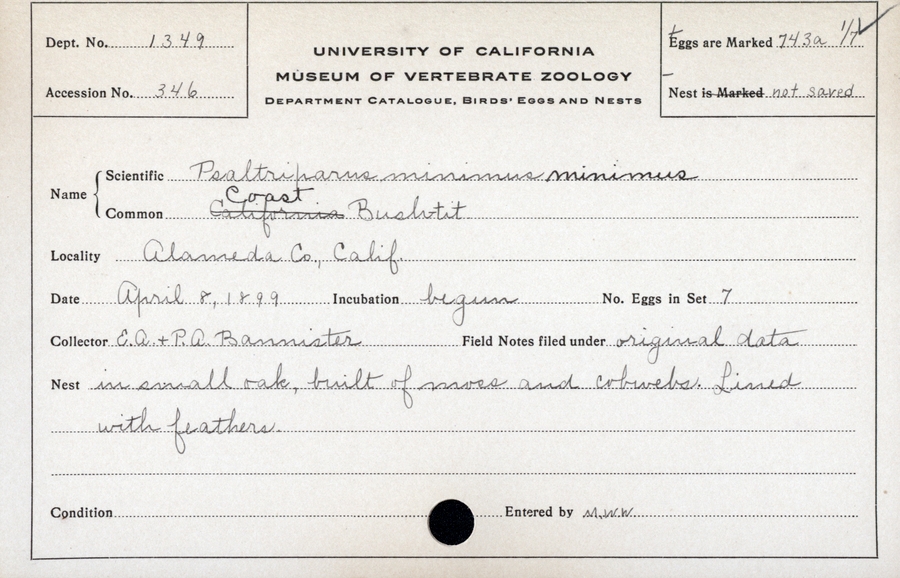 Dept. No. 1349
Accession No. 346
UNIVERSITY OF CALIFORNIA
MUSEUM OF VERTEBRATE ZOOLOGY
DEPARTMENT CATALOGUE, BIRDS' EGGS AND NESTS
Eggs are Marked 743a 1/7
Nest is Marked not saved
Name
Scientific Psaltriparus minimus minimus
Coast
Common California Bush-tit
Locality Alameda Co., Calif.
Date April 8, 1899 Incubation begun No. Eggs in Set 7
Collector E.A. + P.A. Bannister Field Notes filed under original data
Nest in small oak, built of moss and cobwebs. Lined
with feathers.
Condition Entered by M.W.W.